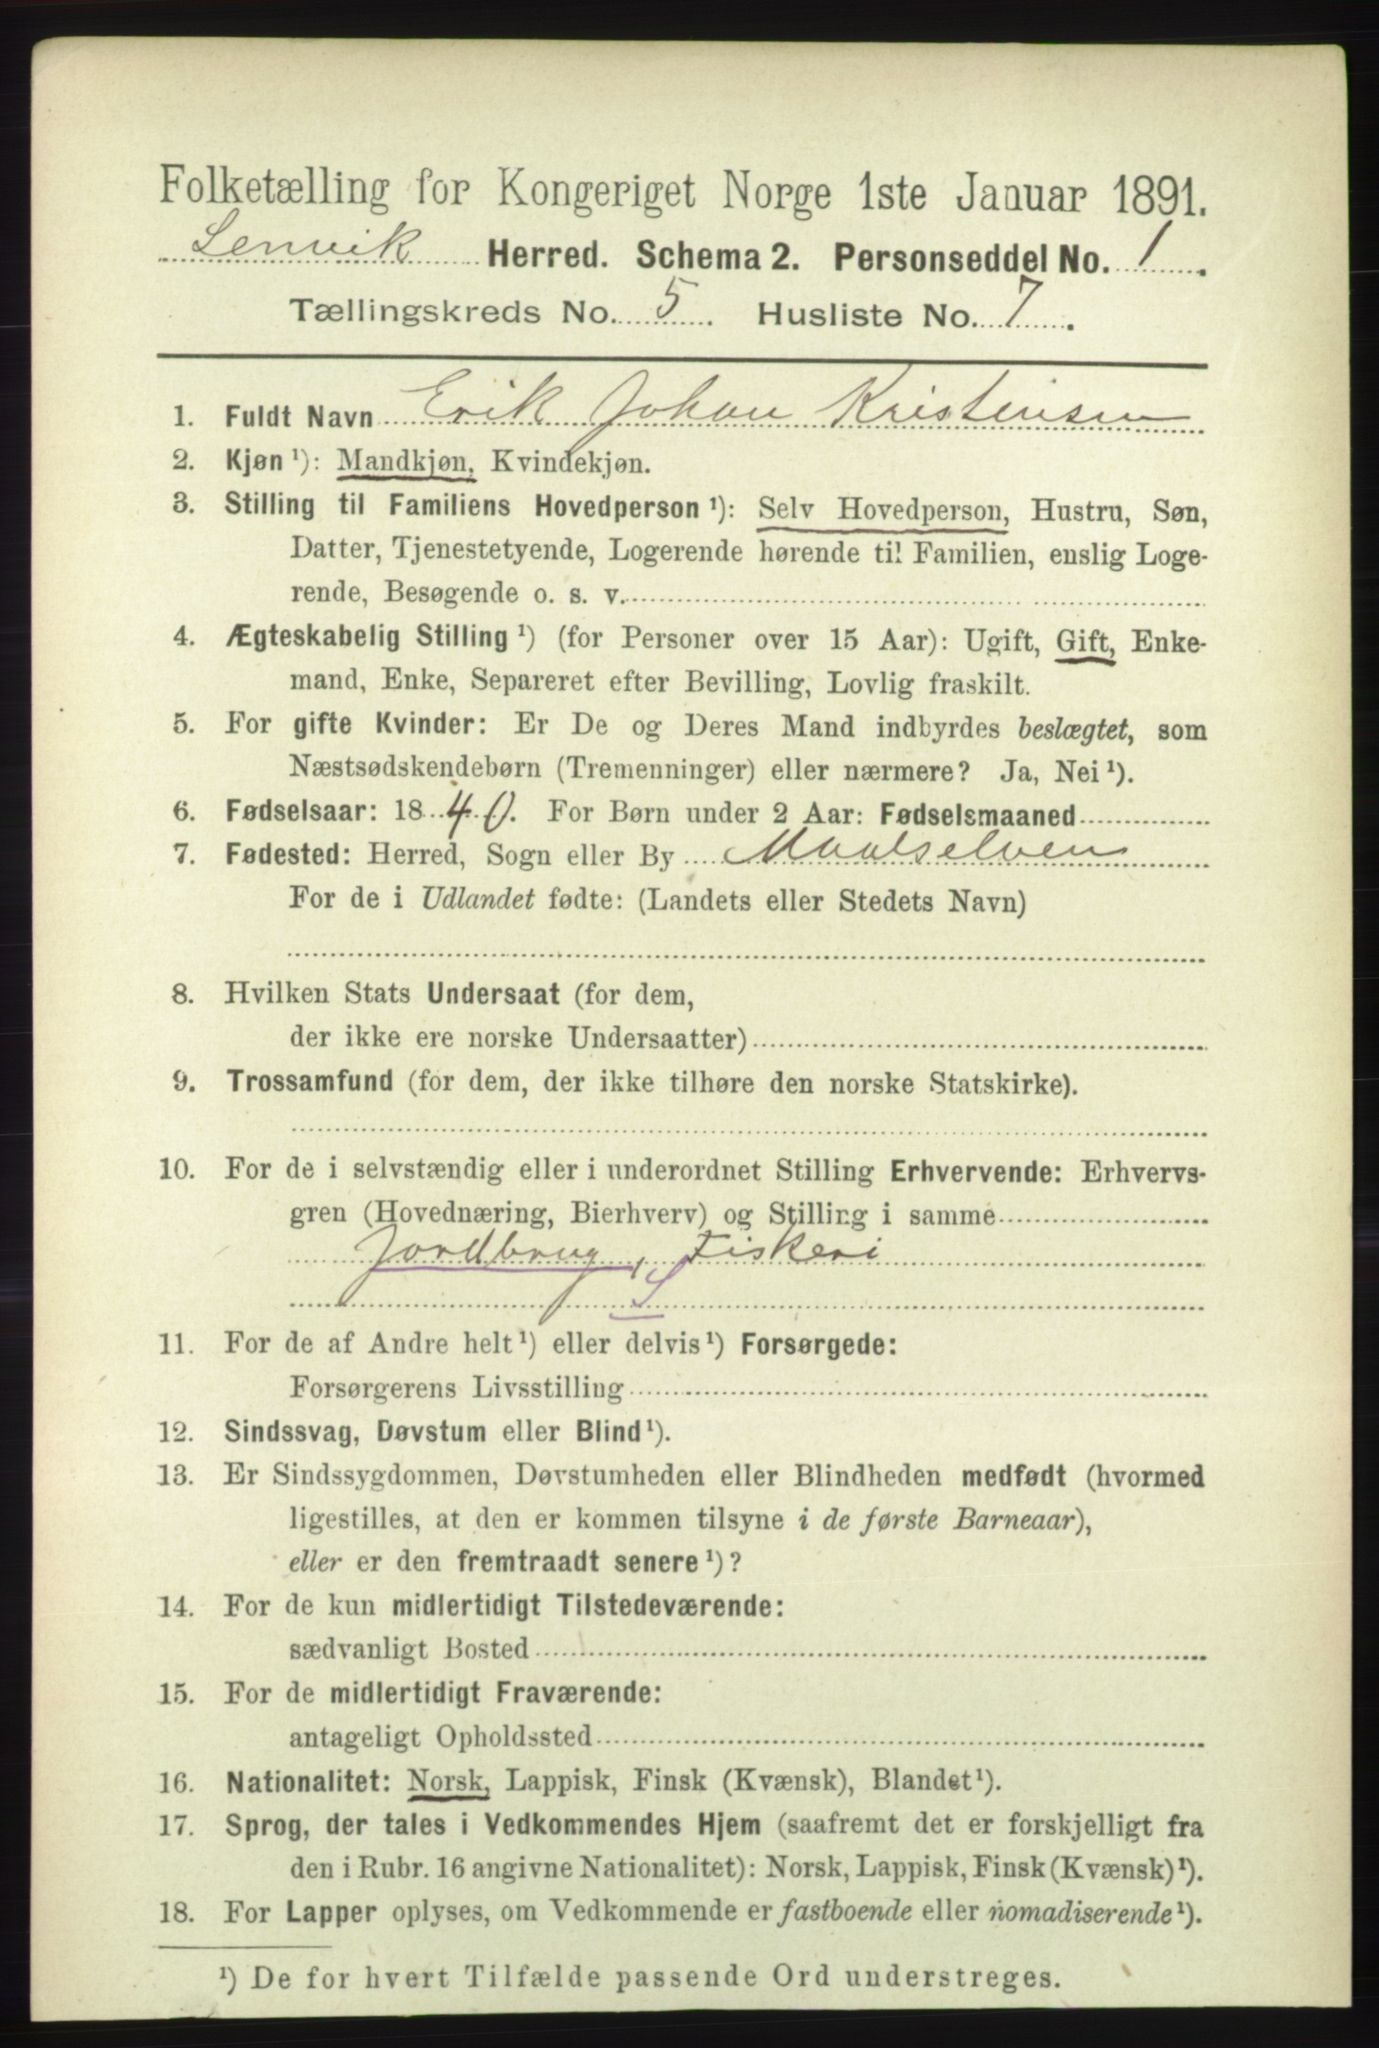 Folketælling for Kongeriget Norge 1ste Januar 1891.
Lenvik Herred. Schema 2. Personseddel No. 1.
Tællingskreds No. 5. Husliste No. 7.
1. Fuldt Navn Erik Johan Kristensen
2. Kjøn ¹): Mandkjøn, Kvindekjøn.
3. Stilling til Familiens Hovedperson ¹): Selv Hovedperson, Hustru, Søn,
Datter, Tjenestetyende, Logerende hørende til Familien, enslig Loge-
rende, Besøgende o. s. v.
4. Ægteskabelig Stilling ¹) (for Personer over 15 Aar): Ugift, Gift, Enke-
mand, Enke, Separeret efter Bevilling, Lovlig fraskilt.
5. For gifte Kvinder: Er De og Deres Mand indbyrdes beslægtet, som
Næstsødskendebørn (Tremenninger) eller nærmere? Ja, Nei ¹).
6. Fødselsaar: 1840. For Børn under 2 Aar: Fødselsmaaned
7. Fødested: Herred, Sogn eller By Maalselven
For de i Udlandet fødte: (Landets eller Stedets Navn)
8. Hvilken Stats Undersaat (for dem,
der ikke ere norske Undersaatter)
9. Trossamfund (for dem, der ikke tilhøre den norske Statskirke).
10. For de i selvstændig eller i underordnet Stilling Erhvervende: Erhvervs-
gren (Hovednæring, Bierhverv) og Stilling i samme
Jordbrug, Fiskeri
S
11. For de af Andre helt ¹) eller delvis ¹) Forsørgede:
Forsørgerens Livsstilling
12. Sindssvag, Døvstum eller Blind ¹).
13. Er Sindssygdommen, Døvstumheden eller Blindheden medfødt (hvormed
ligestilles, at den er kommen tilsyne i de første Barneaar),
eller er den fremtraadt senere ¹)?
14. For de kun midlertidigt Tilstedeværende:
sædvanligt Bosted
15. For de midlertidigt Fraværende:
antageligt Opholdssted
16. Nationalitet: Norsk, Lappisk, Finsk (Kvænsk), Blandet ¹).
17. Sprog, der tales i Vedkommendes Hjem (saafremt det er forskjelligt fra
den i Rubr. 16 angivne Nationalitet): Norsk, Lappisk, Finsk (Kvænsk) ¹).
18. For Lapper oplyses, om Vedkommende er fastboende eller nomadiserende ¹).
¹) De for hvert Tilfælde passende Ord understreges.